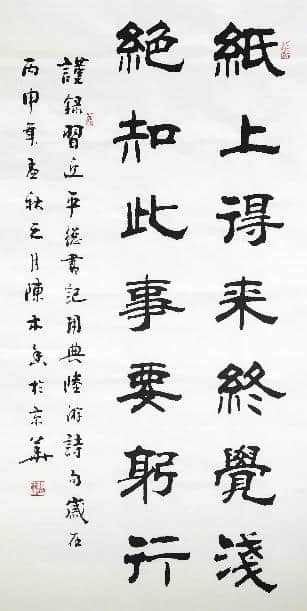 紙上得來終覺淺
絕知此事要躬行
謹錄習近平總書記用典陸游詩句歲在
丙申年孟秋之月陳木於京華